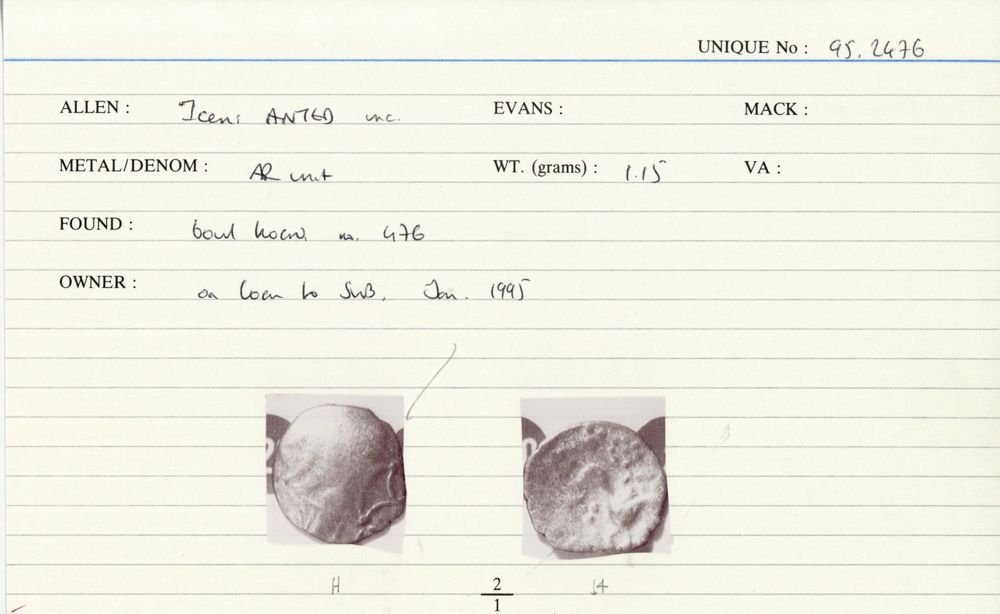 UNIQUE No : 95.2476
ALLEN : Iceni ANTED unc. EVANS : MACK :
METAL/DENOM : AR unit WT. (grams) : 1.15 VA :
FOUND : bowl hoard no. 476
OWNER : on loan to SWB, Jan. 1995
H 2/1 14